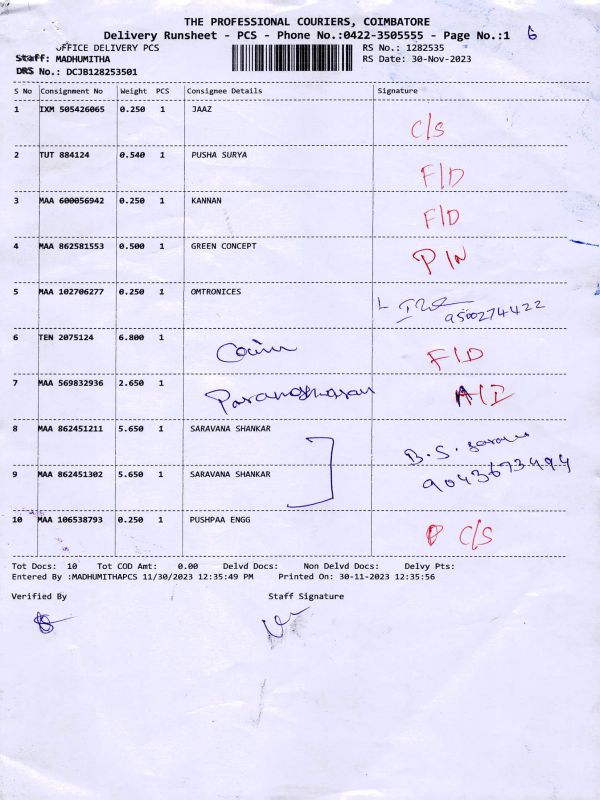 THE PROFESSIONAL COURIERS, COIMBATORE
Delivery Runsheet - PCS - Phone No.:0422-3505555 - Page No.:1 6
OFFICE DELIVERY PCS RS No.: 1282535
Staff: MADHUMITHA RS Date: 30-Nov-2023
DRS No.: DCJB128253501
S No Consignment No Weight PCS Consignee Details Signature
1 IXM 505426065 0.250 1 JAAZ
C/S
2 TUT 884124 0.540 1 PUSHA SURYA
F/D
3 MAA 600056942 0.250 1 KANNAN
F/D
4 MAA 862581553 0.500 1 GREEN CONCEPT
P/N
5 MAA 102706277 0.250 1 OMTRONICES
9500274422
6 TEN 2075124 6.800 1
F/D
7 MAA 569832936 2.650 1
A/I
8 MAA 862451211 5.650 1 SARAVANA SHANKAR
B.S.
9 MAA 862451302 5.650 1 SARAVANA SHANKAR
9043673494
10 MAA 106538793 0.250 1 PUSHPAA ENGG
C/S
Tot Docs: 10 Tot COD Amt: 0.00 Delvd Docs: Non Delvd Docs: Delvy Pts:
Entered By :MADHUMITHAPCS 11/30/2023 12:35:49 PM Printed On: 30-11-2023 12:35:56
Verified By Staff Signature